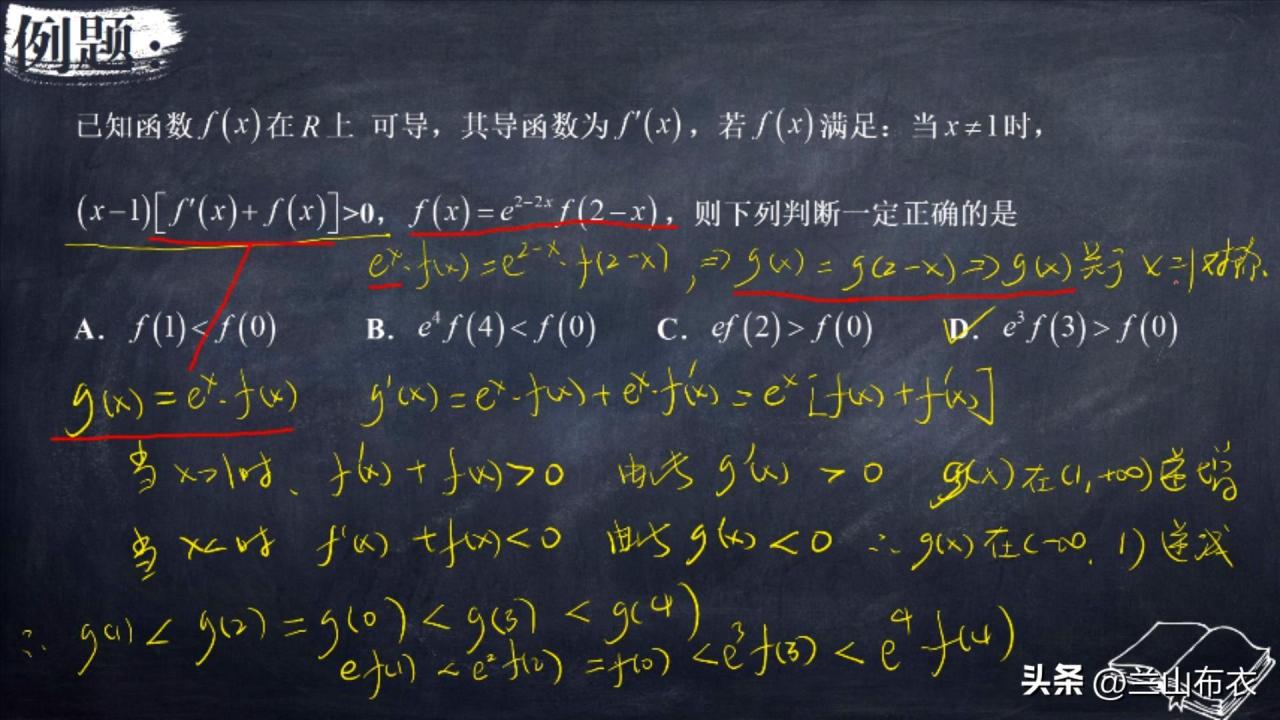 例题:
已知函数f(x)在R上 可导，其导函数为f′(x)，若f(x)满足：当x≠1时，
(x−1)[f′(x)+f(x)]>0，f(x)=e^{2−2x}f(2−x)，则下列判断一定正确的是
e^x·f(x)=e^{2-x}·f(2-x)，⇒g(x)=g(2-x)⇒g(x)关于x=1对称.
A. f(1)<f(0) B. e^4f(4)<f(0) C. ef(2)>f(0) D. e^3f(3)>f(0)
g(x)=e^x·f(x) g′(x)=e^x·f(x)+e^x·f′(x)=e^x[f(x)+f′(x)]
当x>1时、f′(x)+f(x)>0 由此g′(x)>0 g(x)在(1,+∞)递增
当x<1时 f′(x)+f(x)<0 由此g′(x)<0 ∴g(x)在(-∞,1)递减
∴ g(1)<g(2)=g(0)<g(3)<g(4)
ef(1)<e^2f(2)=f(0)<e^3f(3)<e^4f(4)
头条 @兰山布衣